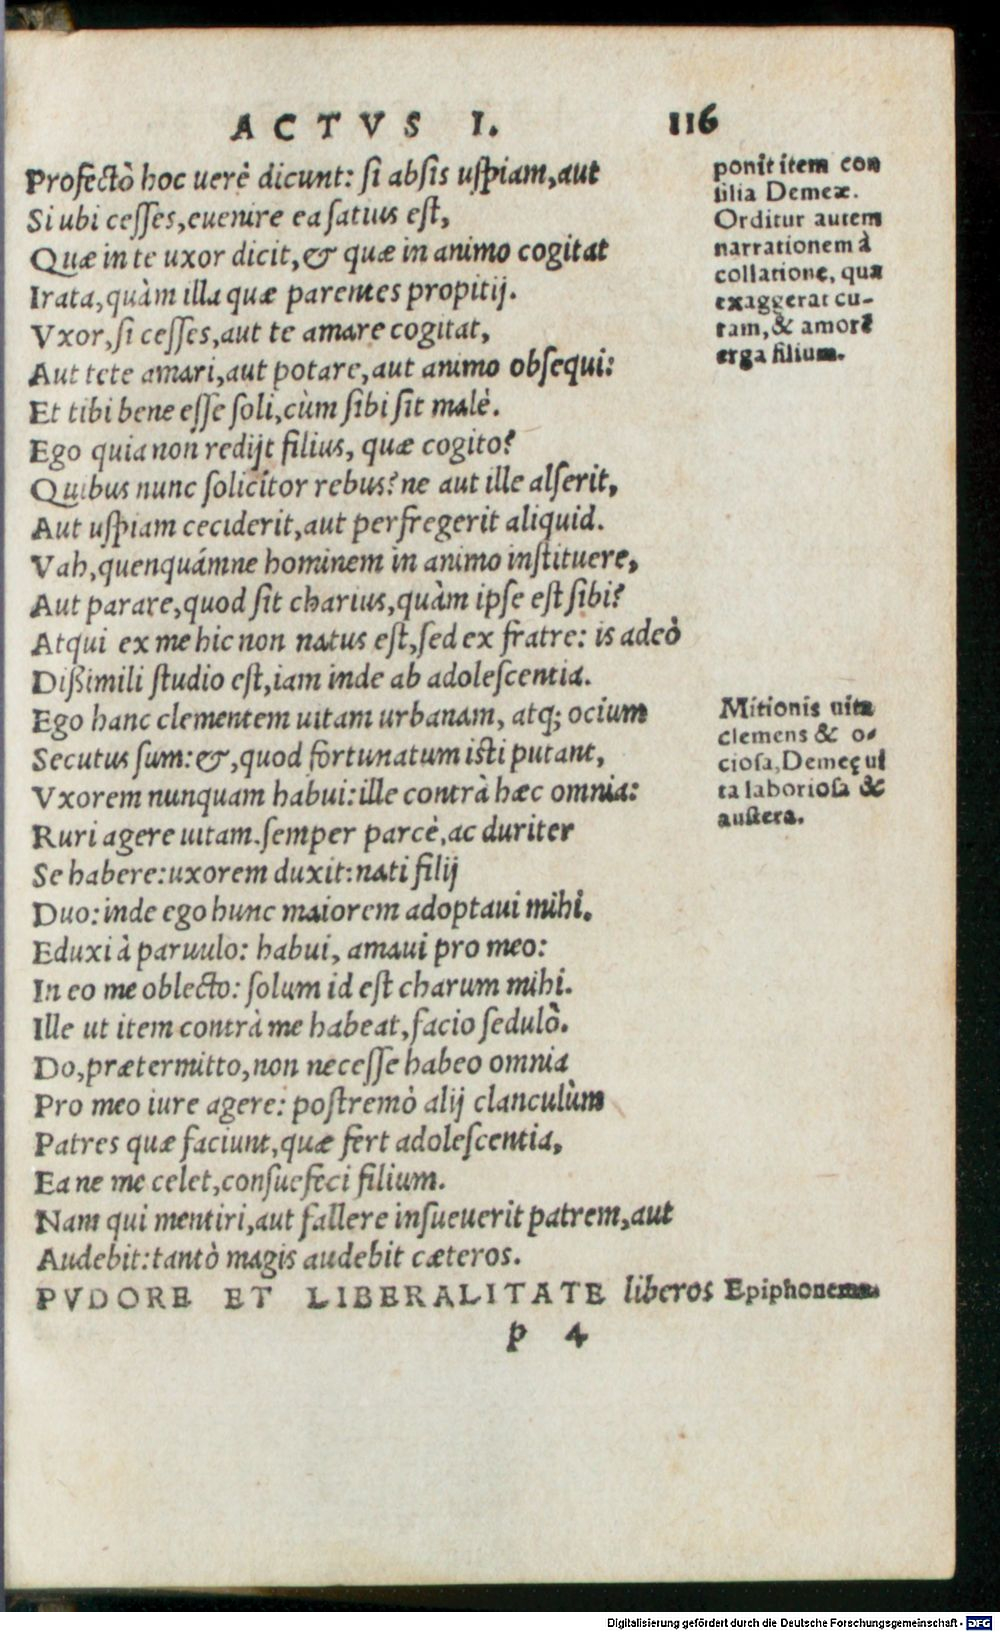 ACTVS I. 116
Profectò hoc uerè dicunt: si absis uspiam, aut
Si ubi cesses, euenire ea satius est,
Quæ in te uxor dicit, & quæ in animo cogitat
Irata, quàm illa quæ parentes propitij.
Vxor, si cesses, aut te amare cogitat,
Aut tete amari, aut potare, aut animo obsequi:
Et tibi bene esse soli, cùm sibi sit malè.
Ego quia non redijt filius, quæ cogito?
Quibus nunc solicitor rebus? ne aut ille alserit,
Aut uspiam ceciderit, aut perfregerit aliquid.
Vah, quenquámne hominem in animo instituere,
Aut parare, quod sit charius, quàm ipse est sibi?
Atqui ex me hic non natus est, sed ex fratre: is adeò
Dißimili studio est, iam inde ab adolescentia.
Ego hanc clementem uitam urbanam, atq; ocium
Secutus sum: &, quod fortunatum isti putant,
Vxorem nunquam habui: ille contrà hæc omnia:
Ruri agere uitam. semper parcè, ac duriter
Se habere: uxorem duxit: nati filij
Duo: inde ego hunc maiorem adoptaui mihi.
Eduxi à paruulo: habui, amaui pro meo:
In eo me oblecto: solum id est charum mihi.
Ille ut item contrà me habeat, facio sedulò.
Do, prætermitto, non necesse habeo omnia
Pro meo iure agere: postremò alij clanculùm
Patres quæ faciunt, quæ fert adolescentia,
Ea ne me celet, consuefeci filium.
Nam qui mentiri, aut fallere insueuerit patrem, aut
Audebit: tantò magis audebit cæteros.
PVDORE ET LIBERALITATE liberos
p 4
ponit item con
silia Demeæ.
Orditur autem
narrationem à
collatione, qua
exaggerat cu-
ram, & amorē
erga filium.
Mitionis uita
clemens & o-
ciosa, Demeę ui
ta laboriosa &
austera.
Epiphonema.
Digitalisierung gefördert durch die Deutsche Forschungsgemeinschaft - DFG